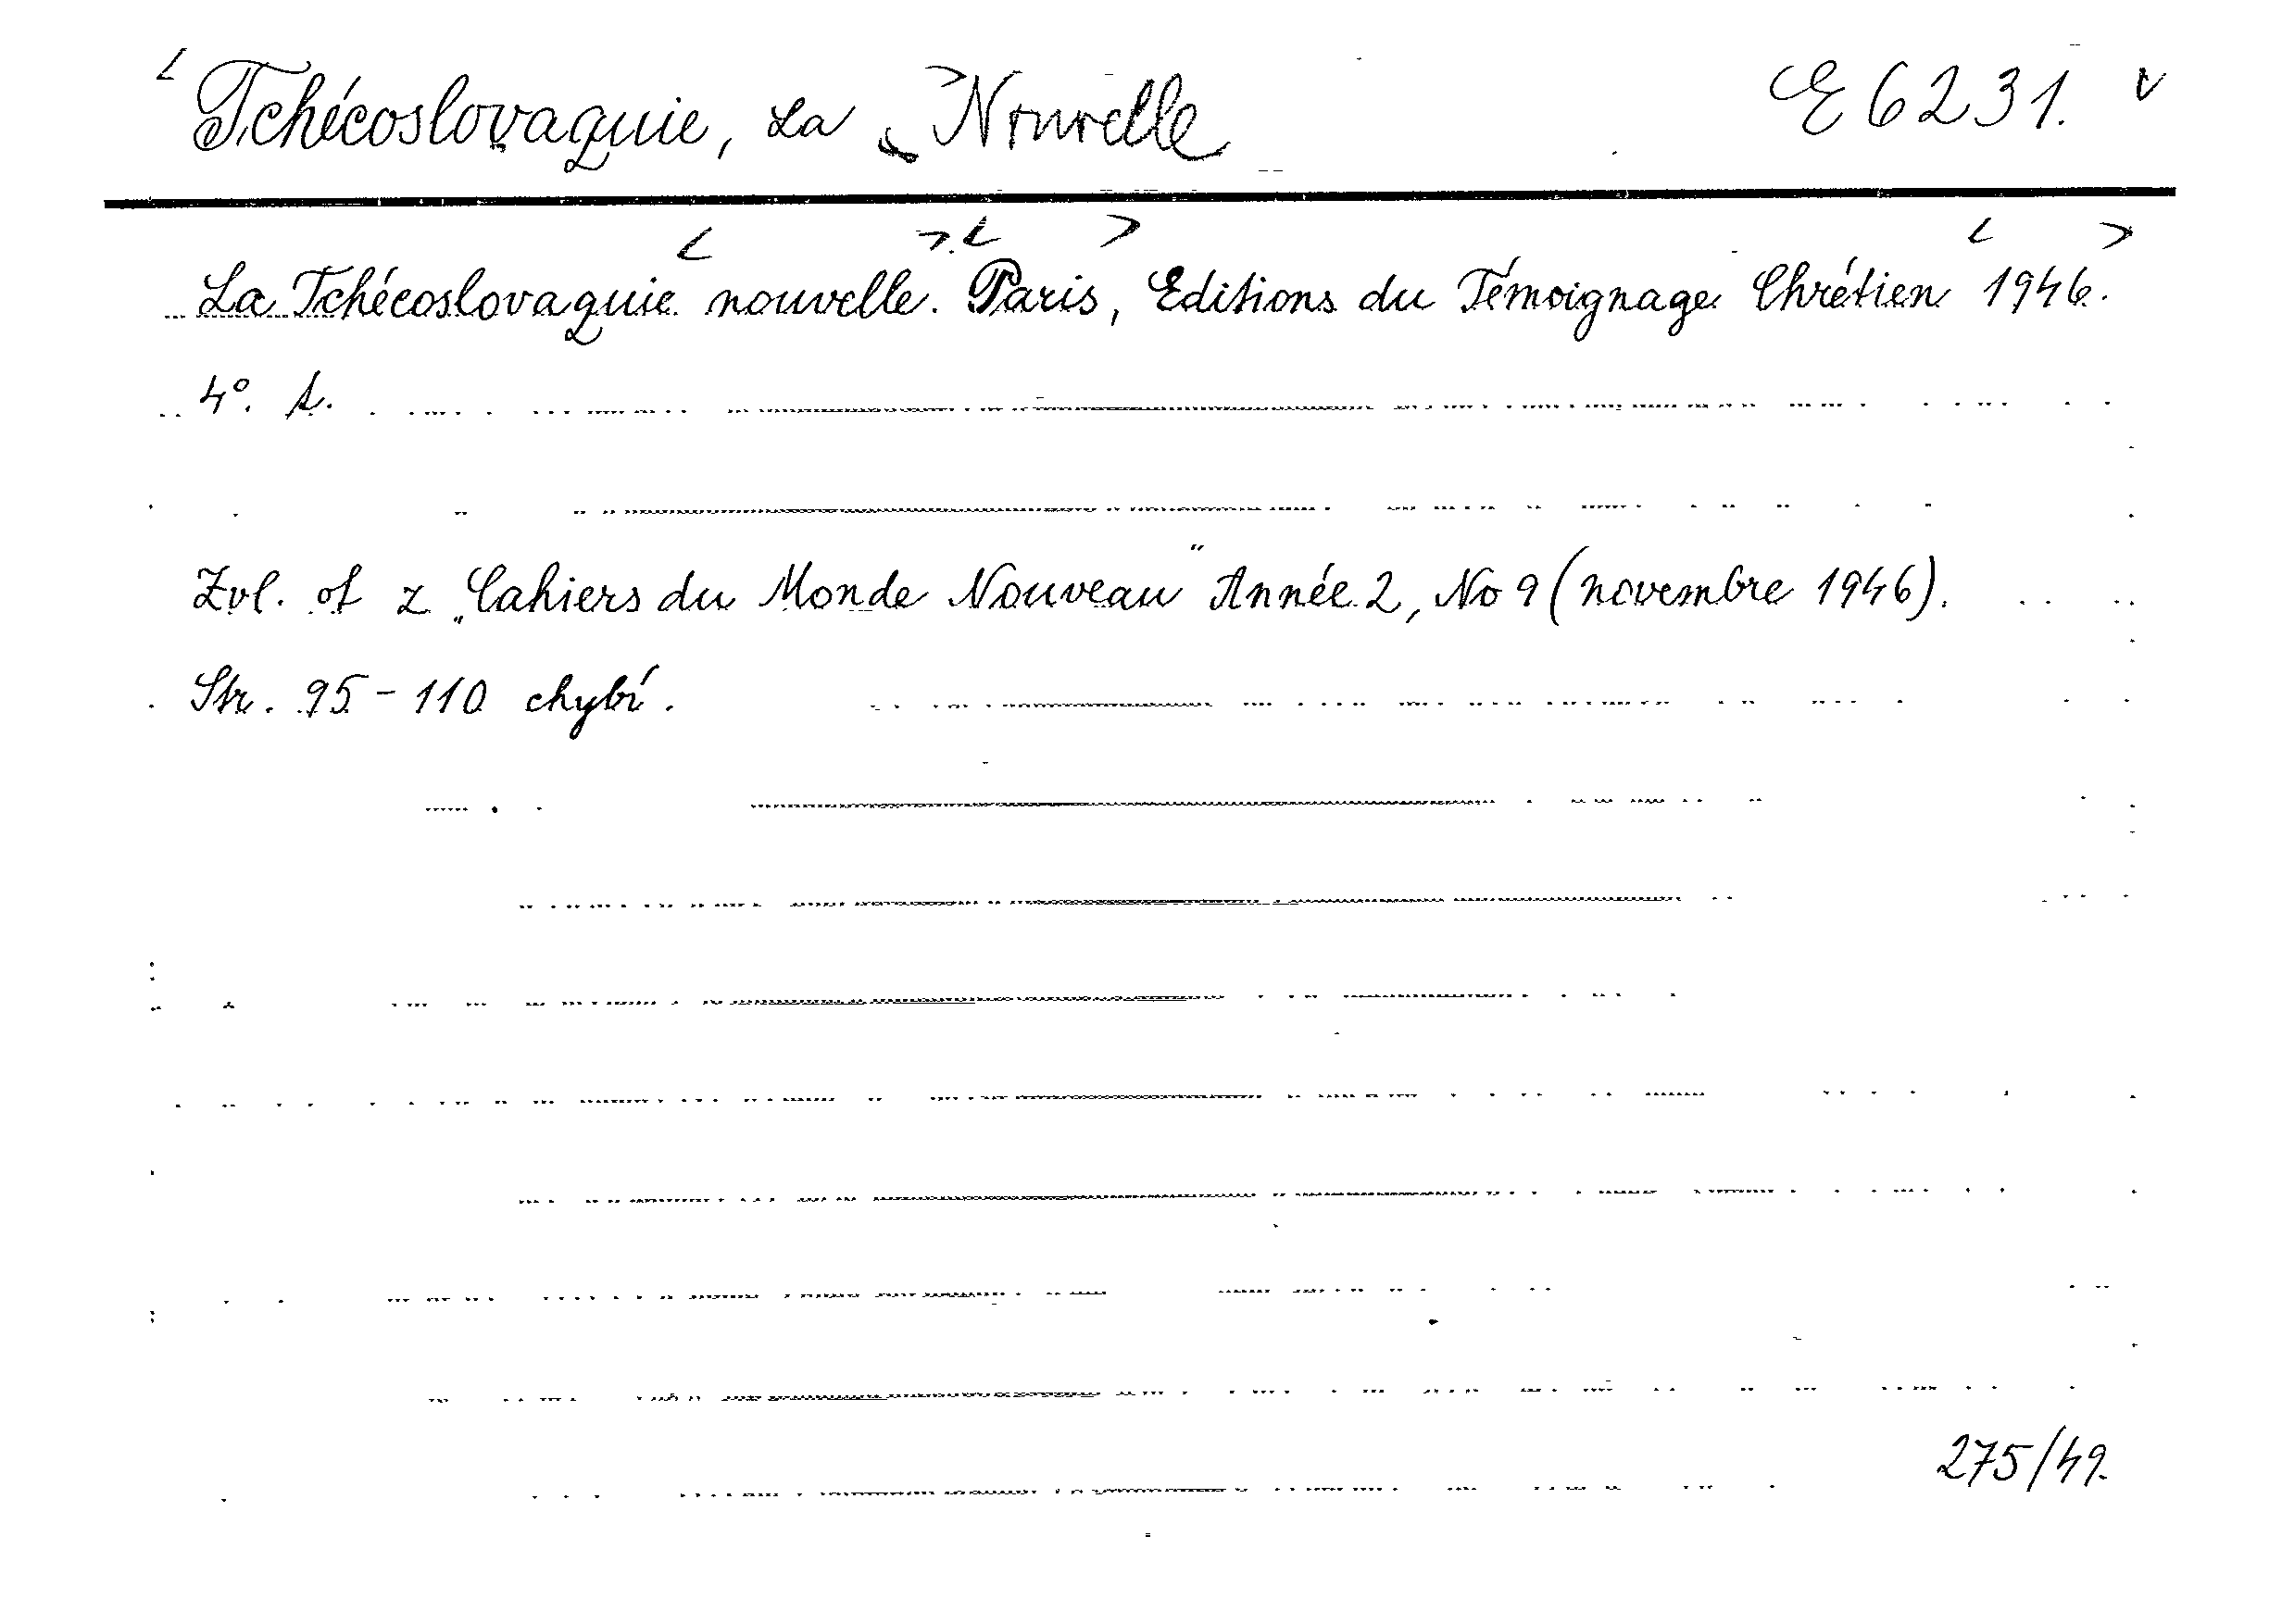 < Tchécoslovaquie, La Nouvelle > E 6231. v
< > < > < >
La Tchécoslovaquie nouvelle. Paris, Editions du Témoignage Chrétien 1946.
4°. s.
Zvl. ot z „Cahiers du Monde Nouveau" Année 2, No 9 (novembre 1946).
Str. 95 - 110 chybí.
275/49.